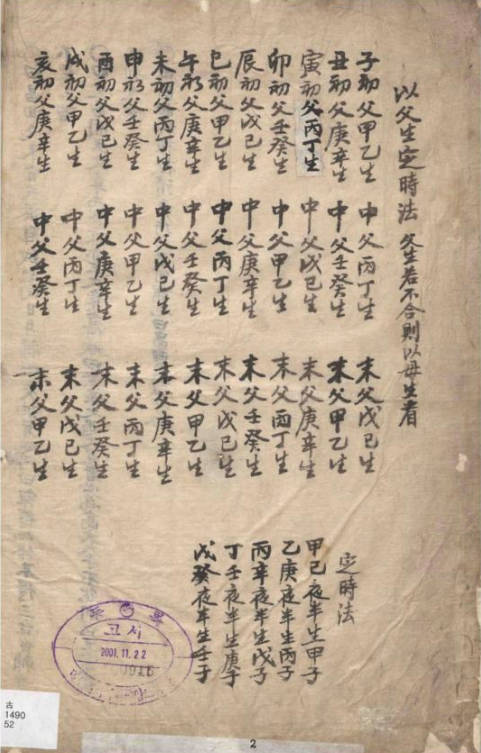 以父生定時法 父生若不合則以母生看
子初父甲乙生 中父丙丁生 末父戊己生
丑初父庚辛生 中父壬癸生 末父甲乙生
寅初父丙丁生 中父戊己生 末父庚辛生
卯初父壬癸生 中父甲乙生 末父丙丁生
辰初父戊己生 中父庚辛生 末父壬癸生
巳初父甲乙生 中父丙丁生 末父戊己生
午初父庚辛生 中父壬癸生 末父甲乙生
未初父丙丁生 中父戊己生 末父庚辛生
申初父壬癸生 中父甲乙生 末父丙丁生
酉初父戊己生 中父庚辛生 末父壬癸生
戌初父甲乙生 中父丙丁生 末父戊己生
亥初父庚辛生 中父壬癸生 末父甲乙生
定時法
甲己夜半生甲子
乙庚夜半生丙子
丙辛夜半生戊子
丁壬夜半生庚子
戊癸夜半生壬子
고서
2001.11.22
古
1490
52
2